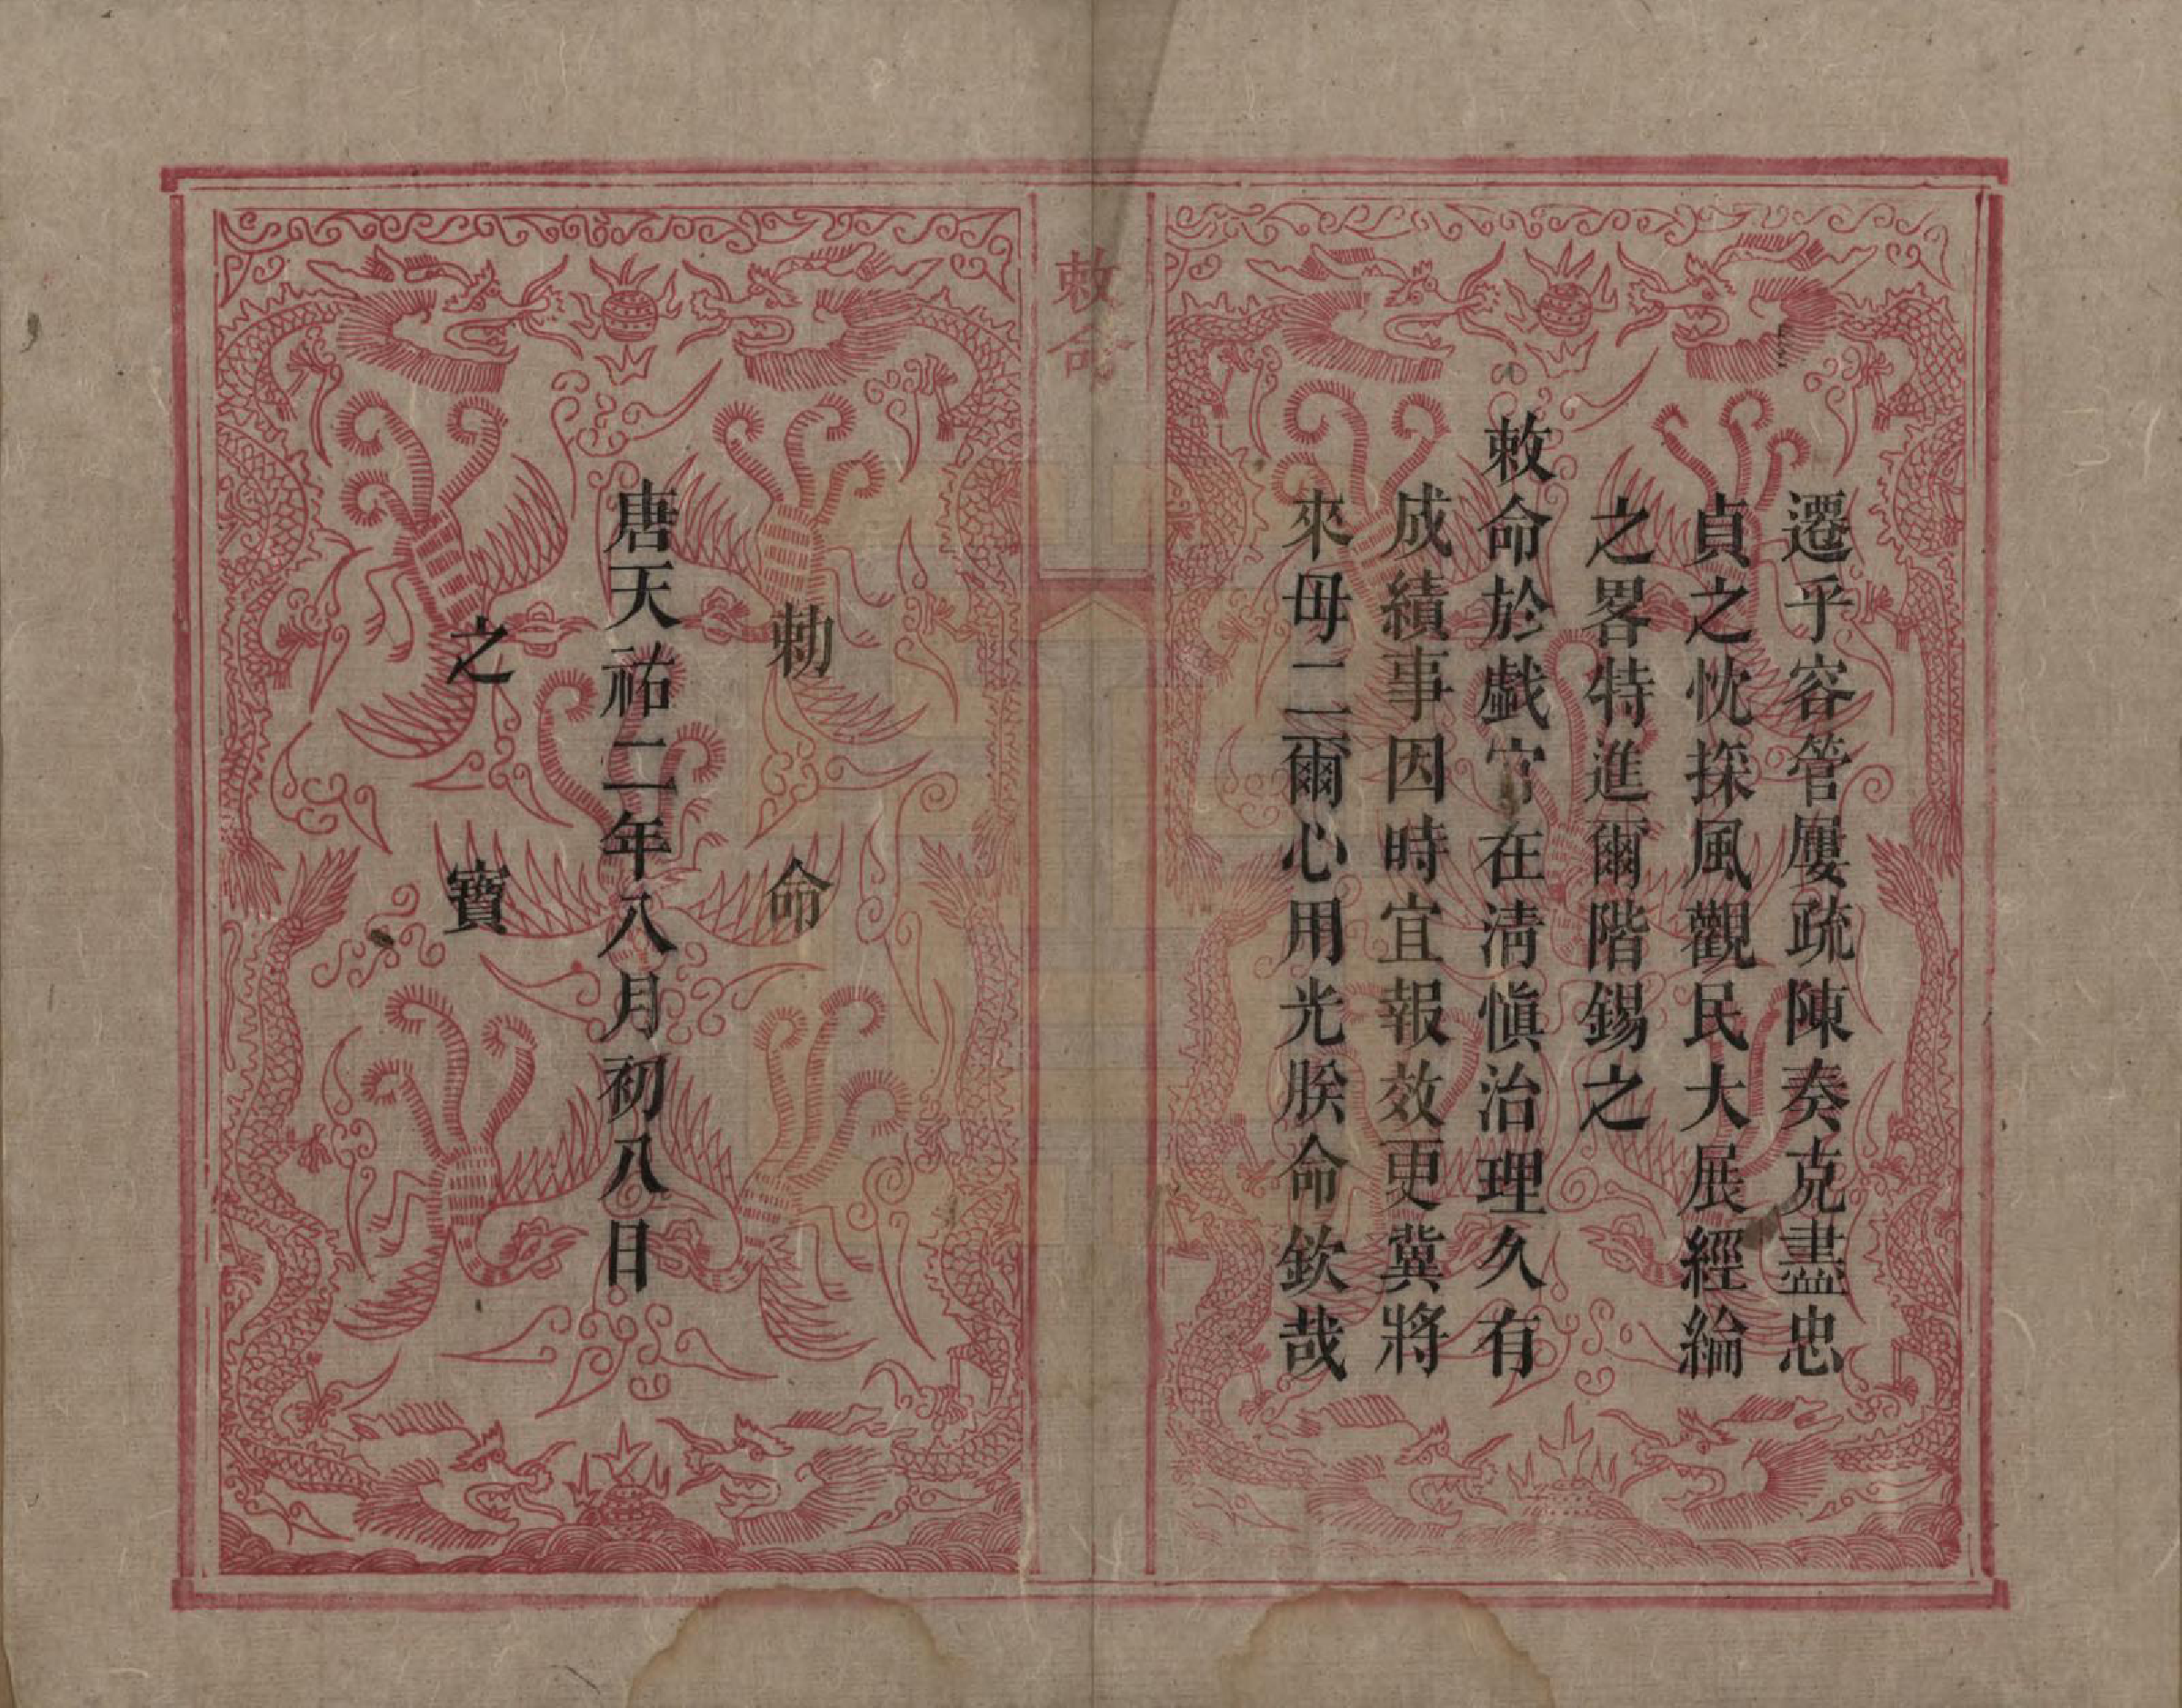 遷乎容管屢疏陳奏克盡忠
貞之忱採風觀民大展經綸
之畧特進爾階錫之
敕命於戱官在淸愼治理久有
成績事因時宜報效更冀將
來毋二爾心用光朕命欽哉
敕命
勅命
唐天祐二年八月初八日
之寶